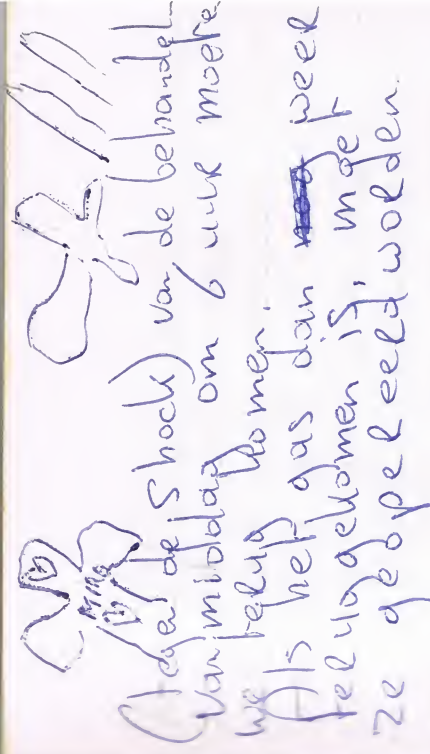 (tegen de shock) van de behandel
Vanmiddag om 6 uuR moete
we terug komen.
Als het gas dan weeR
teruggekomen is, moet
ze geopeReeRd woRden.